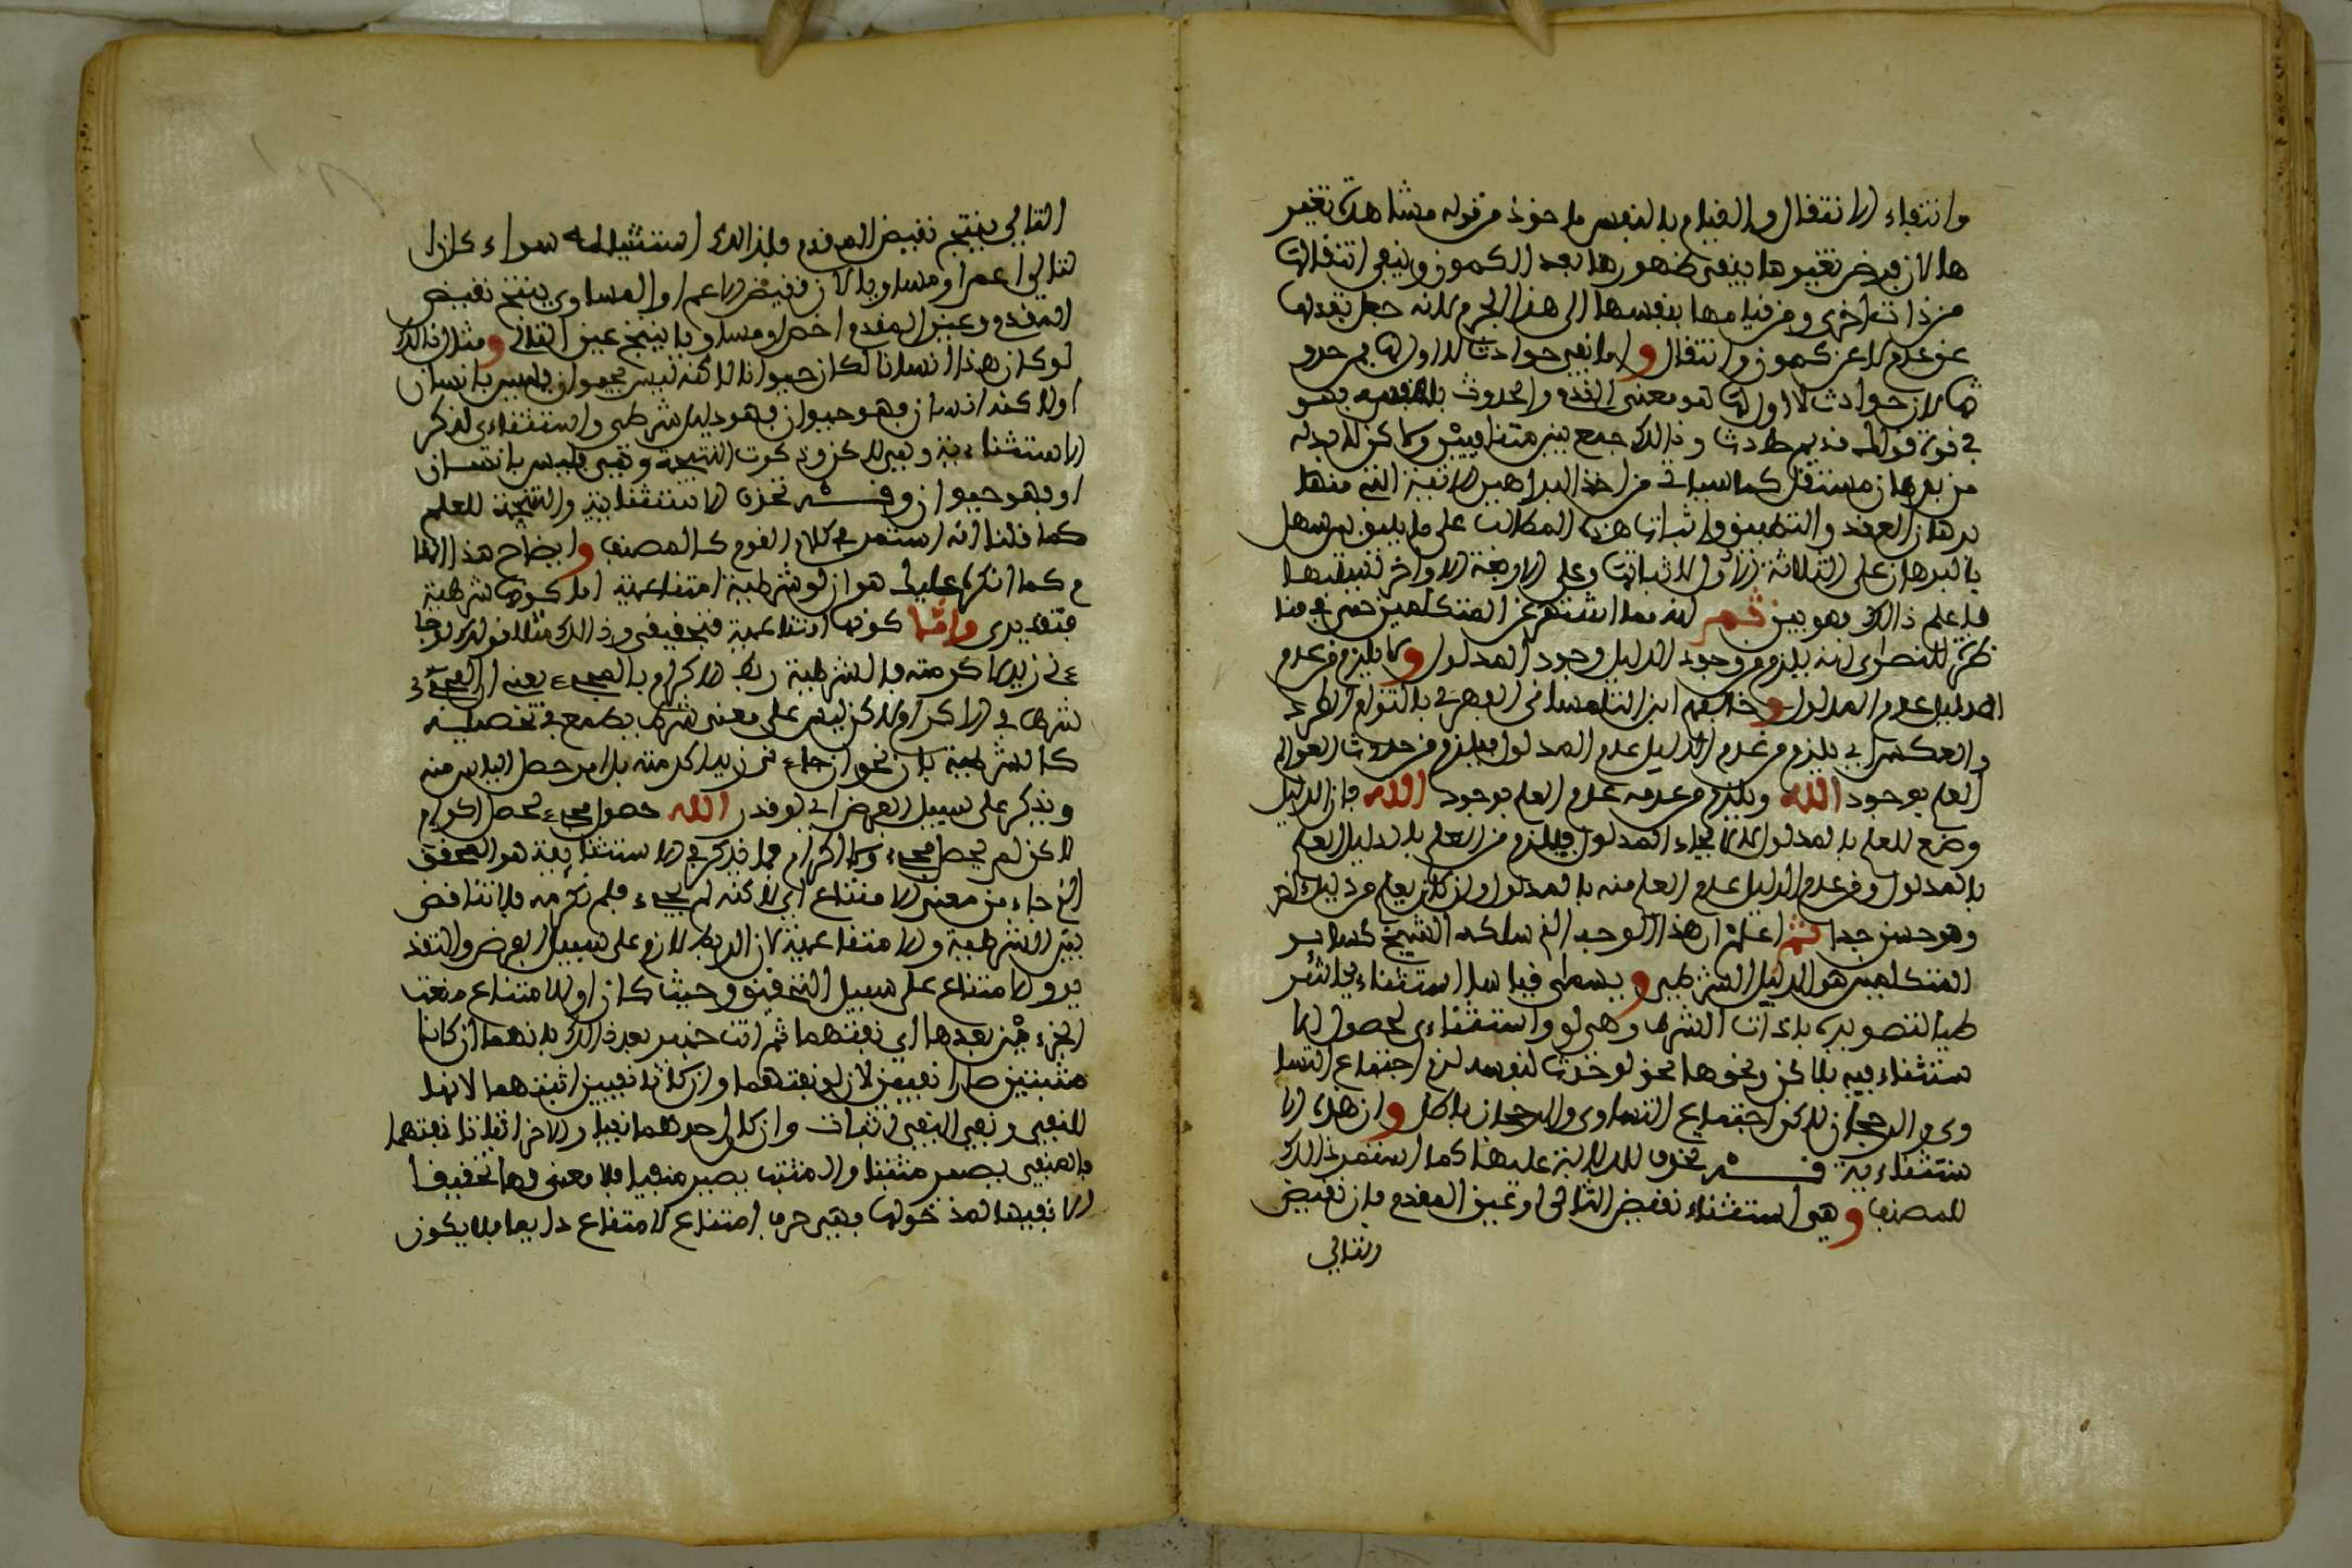 وانتفاء الانتقال والقيام بالنفس ماخوذ من قوله مشاهدة تغير
ها لان فرض تغيرها ينفي ظهورها بعد الكمون وينفي انتقالها
من ذات اخرى ومن قيامها بنفسها الى هذا الجرم لانه جعل تقدلها
عن عدم لا عن كمون وانتقال واما نفي حوادث لا اول لها فمن حدو
ثها لان حوادث لا اول لها هو معنى القدم والحدوث بلا فهو
في قوة قولك قديم حادث وذالك جمع بين متنافيين ولاكن لا بد له
من برهان مستقل كما سياتي من اخذ البراهين الاتية التي منها
برهان العقد والتطبيق واثبات هذه المطالب على ما يليق بمن سهل
بالبرهان على الثلاثة الاول لاثباتها وعلى الاربعة الاواخر لنفيها
فاعلم ذالك فهو بين ثم انه مما اشتهر عن المتكلمين حتى في منا
ظرة للنصارى انه يلزم من وجود الدليل وجود المدلول ولا يلزم من عدم
الدليل عدم المدلول وخالفهم ابن التلمساني الفهري بالتزام الطرد
والعكس اي يلزم من عدم الدليل عدم المدلول فيلزم من حدوث العوالم
العلم بوجود الله ويلزم من عدمه عدم العلم بوجود الله فان الدليل
وضع للعلم بالمدلول لا لايجاد المدلول فيلزم من العلم بالدليل العلم
بالمدلول ومن عدم الدليل عدم العلم منه بالمدلول وان كان يعلم من دليل اخر
وهو حسن جدا ثم اعلم ان هذا الوجه الذي سلكه الشيخ كساير
المتكلمين هو الدليل الشرطي ويسمى قياسا استثناءيا شر
طيا لتصويره باداة الشرط وهي لو واستثناءي لحصول الا
ستثناء فيه بلاكن ونحوها نحو لو حدث لنفسه لزم اجتماع التسا
وي والرجحان لاكن اجتماع التساوي والرجحان باطل وان هذه الا
ستثناءية قــد تحذف للدلالة عليها كما استمر ذالك
للمصنف وهي استثناء نقيض التالي او عين المقدم فان نقيض
التالي
التالي ينتج نقيض المقدم فلذالك استثنيا له سواء كان ا
لتالي اعم او مساويا لان نقيض الاعم او المساوي ينتج نقيض
المقدم وعين المقدم اخص او مساويا ينتج عين التالي ومثال ذالك
لو كان هذا انسانا لكان حيوانا لاكنه ليس بحيوان فليس بانسان
او لاكنه انسان فهو حيوان فهو دليل شرطي واستثناءي لذكر
الاستثناءية وهي لاكن وذكرت النتيجة وهي فليس بانسان
او فهو حيوان وقــد تحذف الاستثنائية والنتيجة للعلم
كما قلنا انه استمر في كلام القوم كالمصنف وايضاح هذا المقا
م كما انكره عليك هو ان لو شرطية امتناعية اما كونها شرطية
فتقديري واما كونها امتناعية فتحقيقي وذالك مثلا قولك لو جا
ءني زيد اكرمته فالشرطية ربط الاكرام بالمجيء يعني ان المجيء
شرط في الاكرام ولاكن ليس على معنى شرط يطمع في تحصيله
كالشرطية بان نحو ان جاءني زيد اكرمته بل امر حصل الياس منه
ويذكر على سبيل الفرض اي لو قدر الله حصول مجيء لحصل اكرام
لاكن لم يحصل مجيء ولا اكرام فما ذكر في الاستثنايية هو المحقق
الذي جاء من معنى الامتناع اي لاكنه لم يجيء فلم نكرمه فلا تناقض
بين الشرطية والامتناعية لان الربط لازم على سبيل الفرض والتقد
ير والامتناع على سبيل التحقيق وحيث كان اول الامتناع منعت
الجزءين بعدها اي نفتهما ثم انت خبير بعد ذالك بانهما ان كانا
مثبتين صارا نفيين لان لو نفتهما وان كانا نفيين اثبتتهما لانها
للنفي ونفي النفي اثبات وان كان احدهما نفيا والاخر اثباتا نفتهما
فالمنفي يصير مثبتا والمثبت يصير منفيا فلا معنى لها تحقيقا
الا نفيها لمدخولها فهي حرف امتناع لامتناع دايما فلا يكون